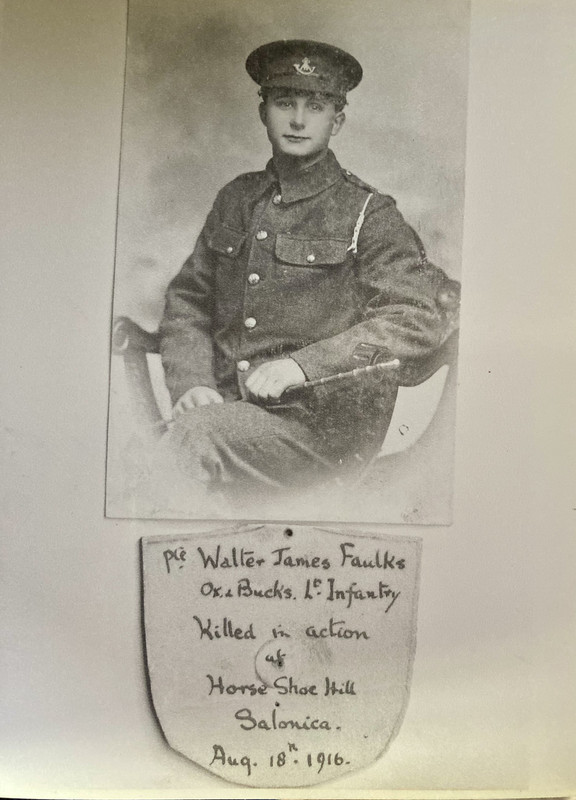 Pte Walter James Faulks
Ox. & Bucks. Lt. Infantry
Killed in action
at
Horse Shoe Hill
Salonica.
Aug. 18th. 1916.